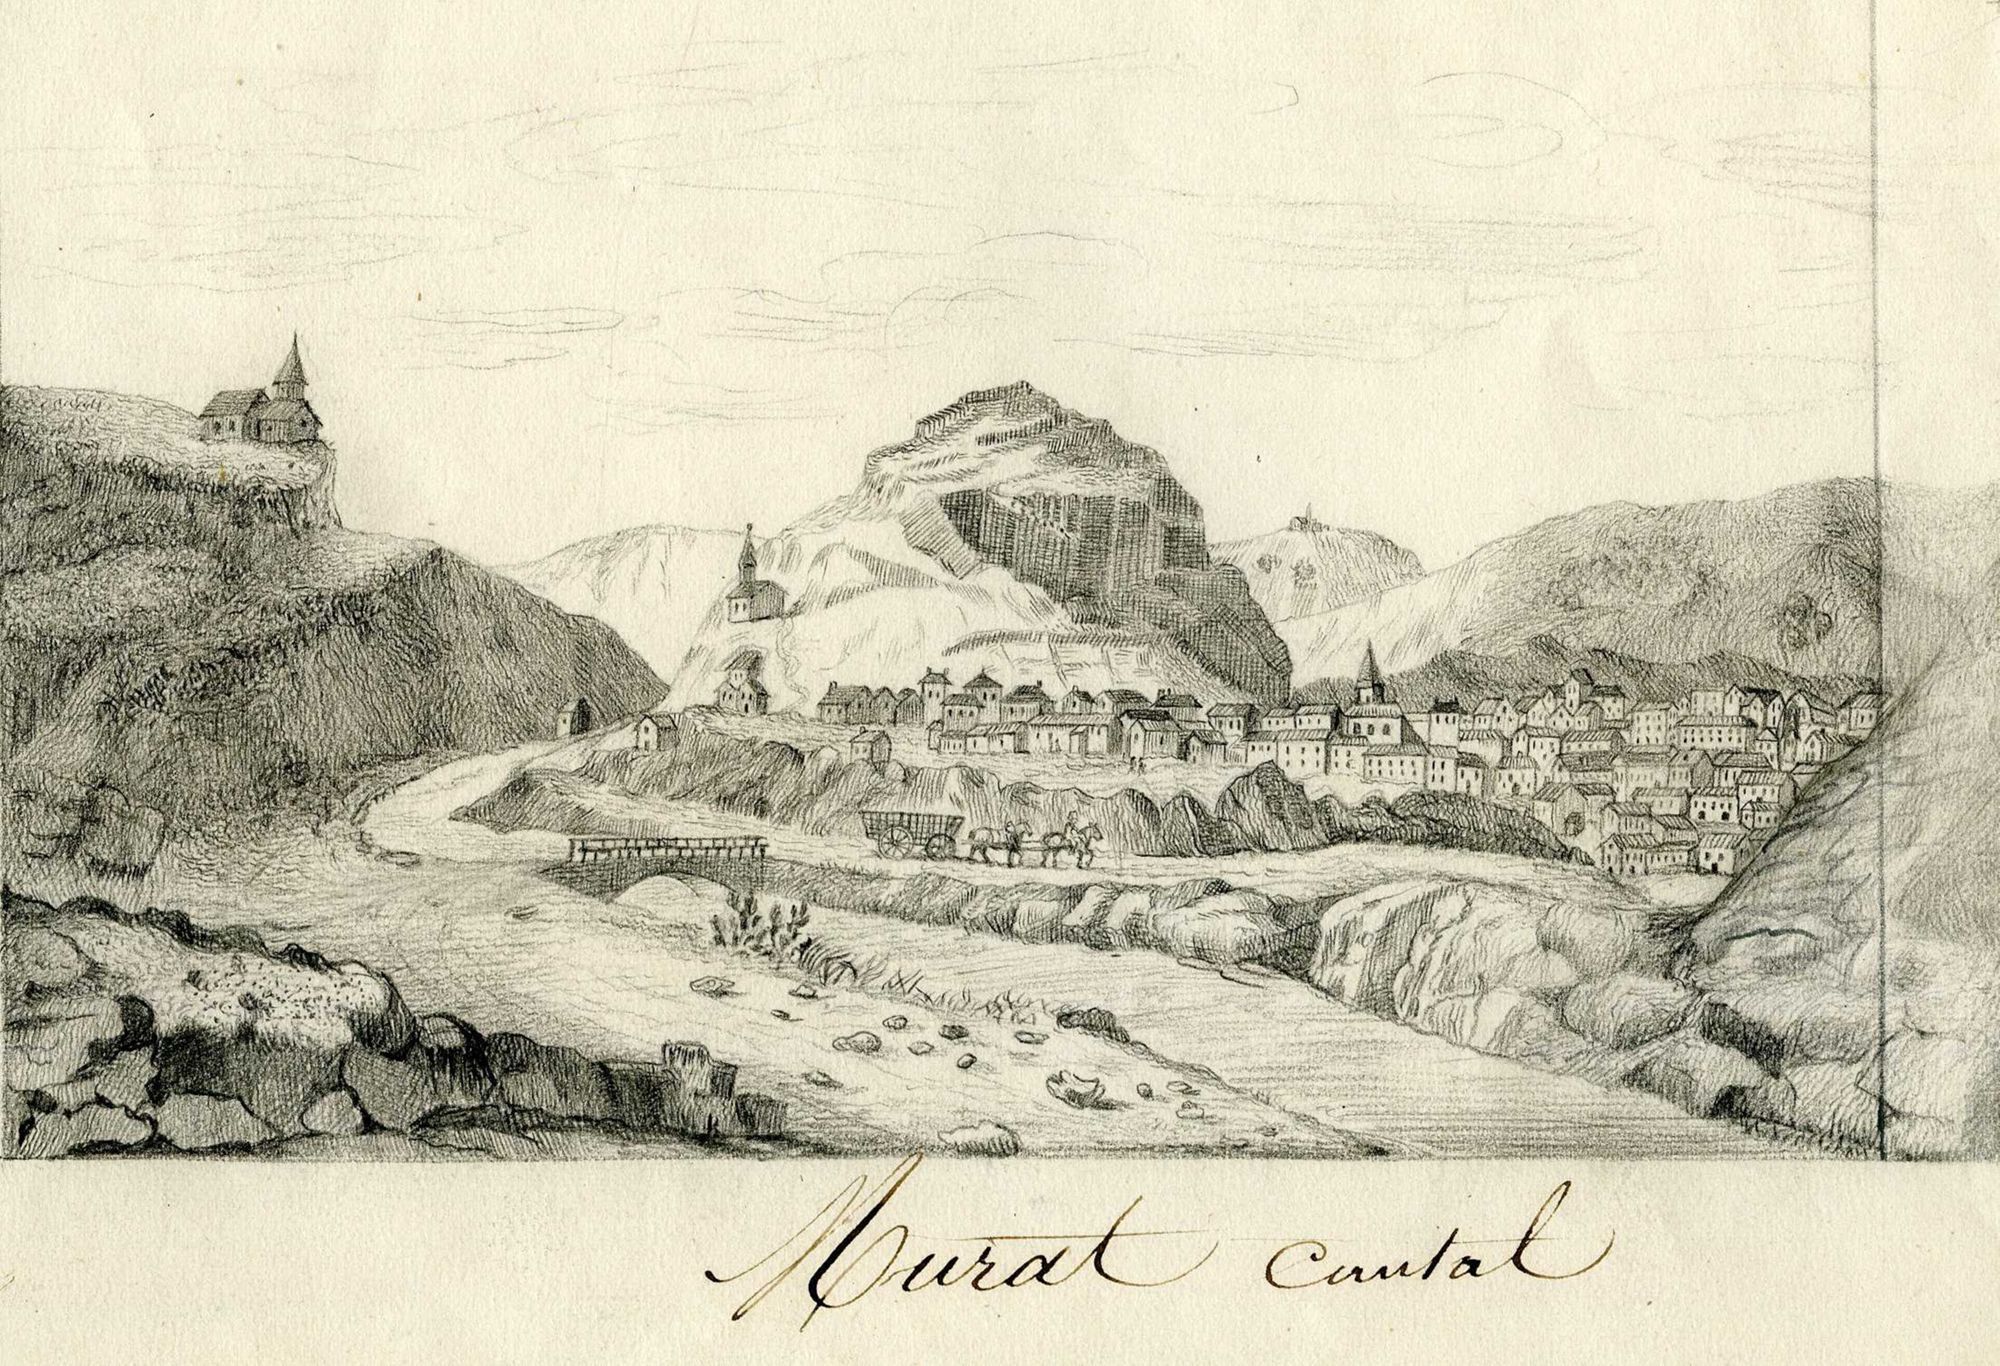 Murat cantal